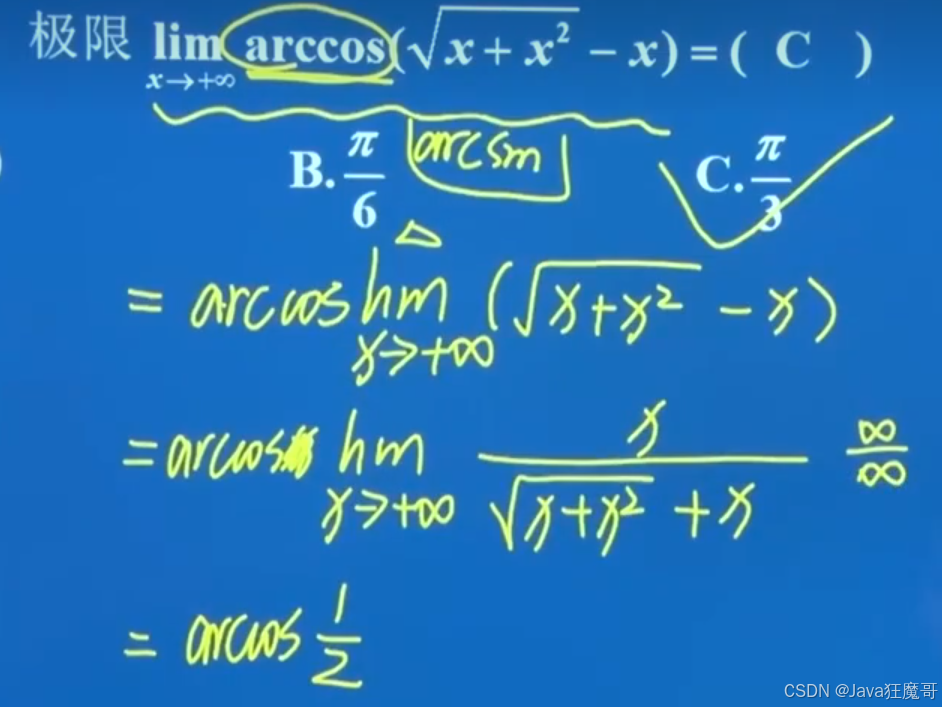 极限 lim arccos(√x + x² − x) = ( C )
x→+∞
B. π/6 arcsin C. π/3
△
= arccos lim (√x+x² − x)
x→+∞
= arccos lim x / √x+x² + x ∞/∞
x→+∞
= arccos 1/2
CSDN @Java狂魔哥